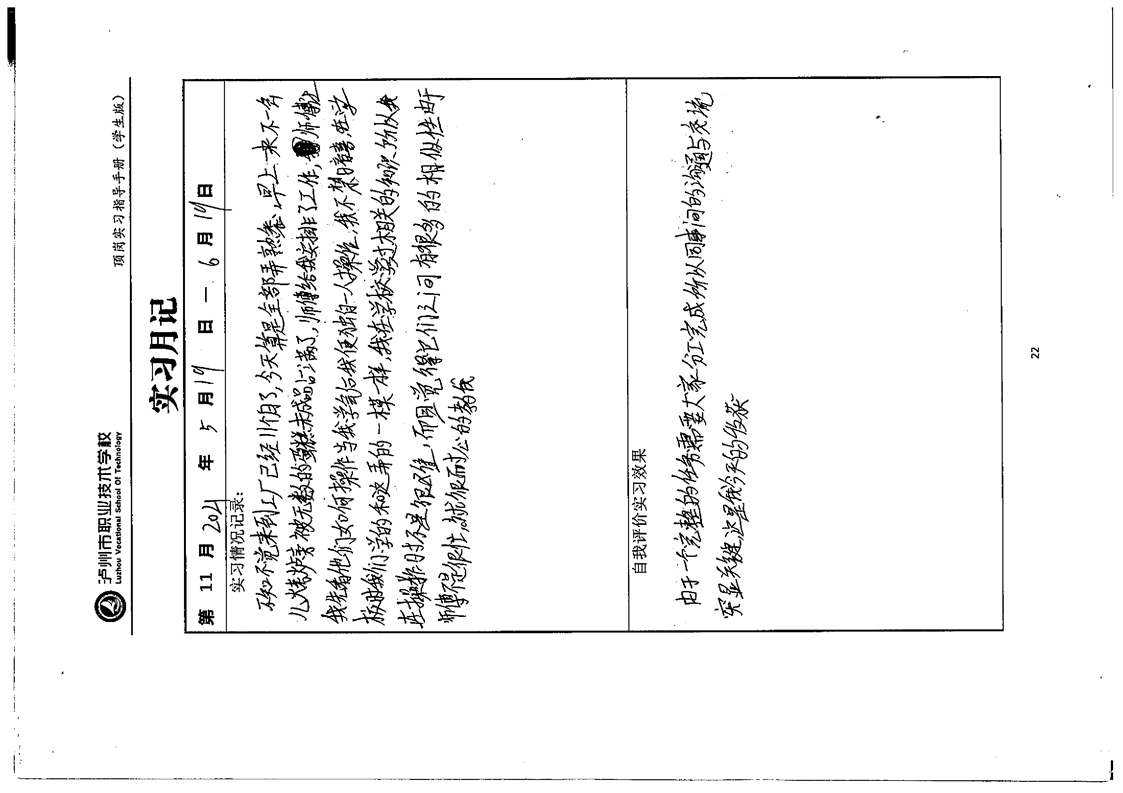 泸州市职业技术学校
Luzhou Vocational School Of Technology
顶岗实习指导手册（学生版）
实习月记
第 11 月 2021 年 5 月 19 日 — 6 月 19 日
实习情况记录：
不知不觉来到工厂已经11个月了，今天算是全部弄熟悉，早上一来不一会
儿烤炉旁被无数的蛋糕未成品占满了，师傅给我安排了工作，师傅让
我先看他们如何操作当我学会后我便独自一人操作，我不禁暗喜，在学
校时我们学的和这弄的一模一样，我在学校学过相关的知识所以我
在操作时不是很难，而且觉得它们之间有很多的相似性由于
师傅不是很忙，就很耐心的教我
自我评价实习效果
由于一个完整的任务需要大家分工完成所以同事间的沟通与交流
突显关键，这是我今天的收获
22